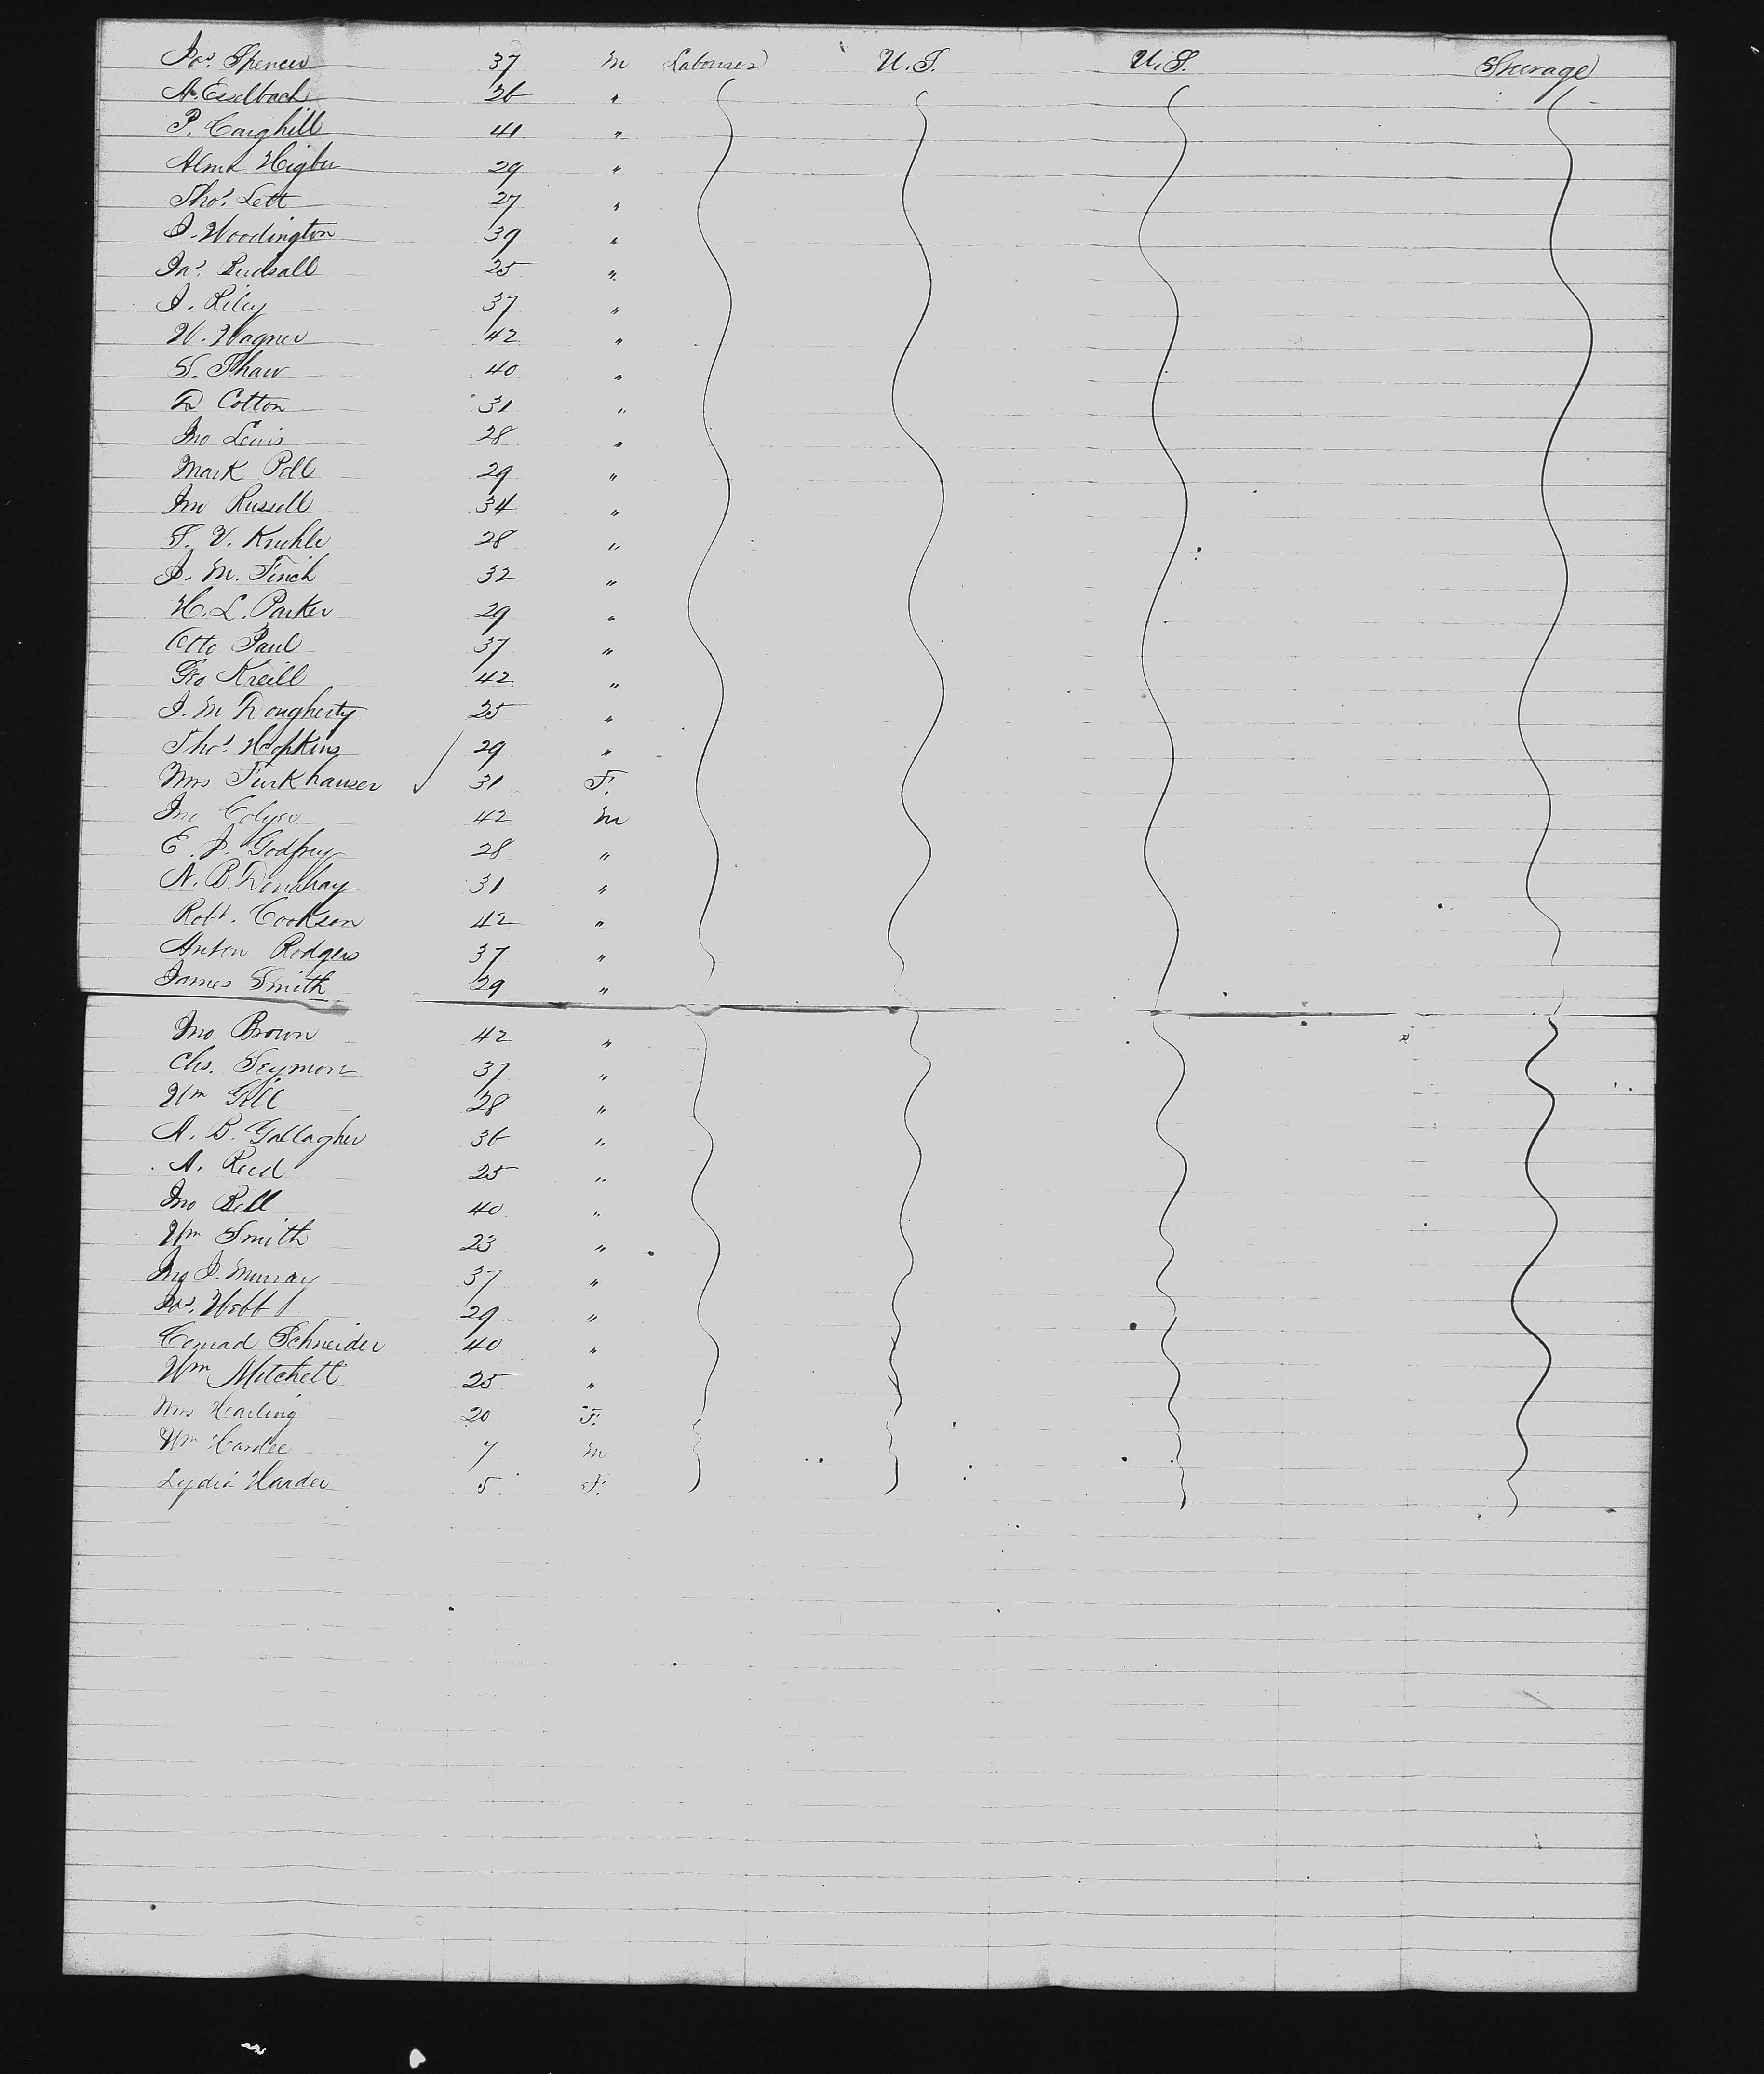 Jas. Spencer 37 M Labourer U.S. U.S. Steerage
A. Esselbach 26 "
P. Carghill 41 "
Alma Higbee 29 "
Thos. Lett 27 "
J. Woodington 39 "
Jas. 25 "
J. Riley 37 "
W. Wagner 42 "
S. Shaw 40 "
D Cotton 31 "
Jno Lewis 28 "
Mark Pell 29 "
Jno Russell 34 "
T. V. 28 "
J. M. Finch 32 "
H. L. Parker 29 "
Otto Paul 37 "
Geo Kreill 42 "
J. M Dougherty 25 "
Thos. Hopkins 29 "
Mrs Funkhauser 31 F.
Jno Colyer 42 M
E. J. Godfrey 28 "
N. B. Donahay 31 "
Robt. Cookson 42 "
Anton Rodgers 37 "
James Smith 29 "
Jno Brown 42 "
Chs. Seymour 37 "
Wm Gill 28 "
A. B. Gallagher 36 "
A. Reed 25 "
Jno Bell 40 "
Wm Smith 23 "
Jno J. Murray 37 "
Jas. Webb 29 "
Conrad Schneider 40 "
Wm Mitchell 25 "
Mrs Harling 20 F.
Wm Hardee 7 M
Lydia Harder 5 F.